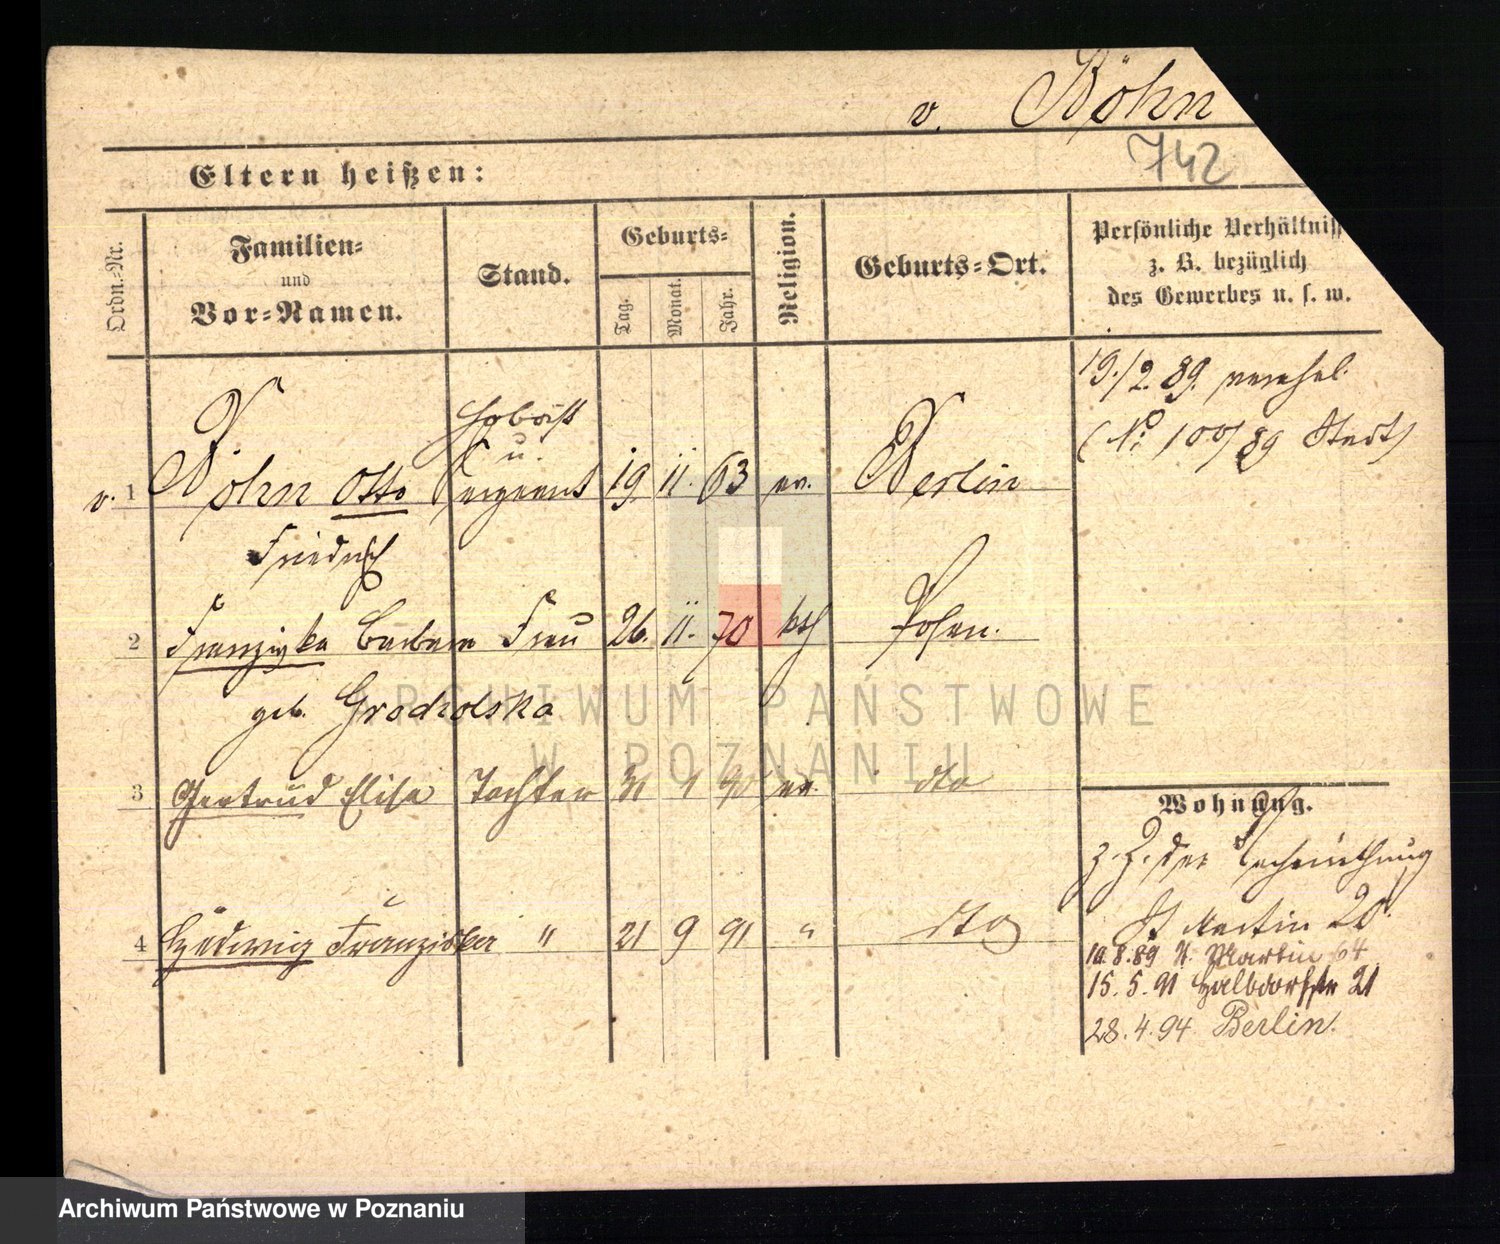 v. Böhn
742
Eltern heißen:
Ordn.-Nr.
Familien-
und
Vor-Namen.
Stand.
Geburts-
Tag.
Monat.
Jahr.
Religion.
Geburts-Ort.
Persönliche Verhältniss
z. B. bezüglich
des Gewerbes u. s. w.
19./2. 89. verehel.
(No 100/89 Stadt)
v. 1 Böhn Otto Hoboist u. Sergeant 19. 11. 63 ev. Berlin
Friedrich
2 Franziska Barbara Frau 26. 11. 70 kth Posen.
geb. Grodzolska
3 Gertrud Elise Tochter 31 1 90 ev. dto
4 Hedwig Franziska " 21 9 91 " dto
Wohnung.
z. Z. der
St Martin 26.
10.8.89 St. Martin 64
15.5.91 Halbdorfstr 21
28.4.94 Berlin.
ARCHIWUM PAŃSTWOWE
W POZNANIU
Archiwum Państwowe w Poznaniu